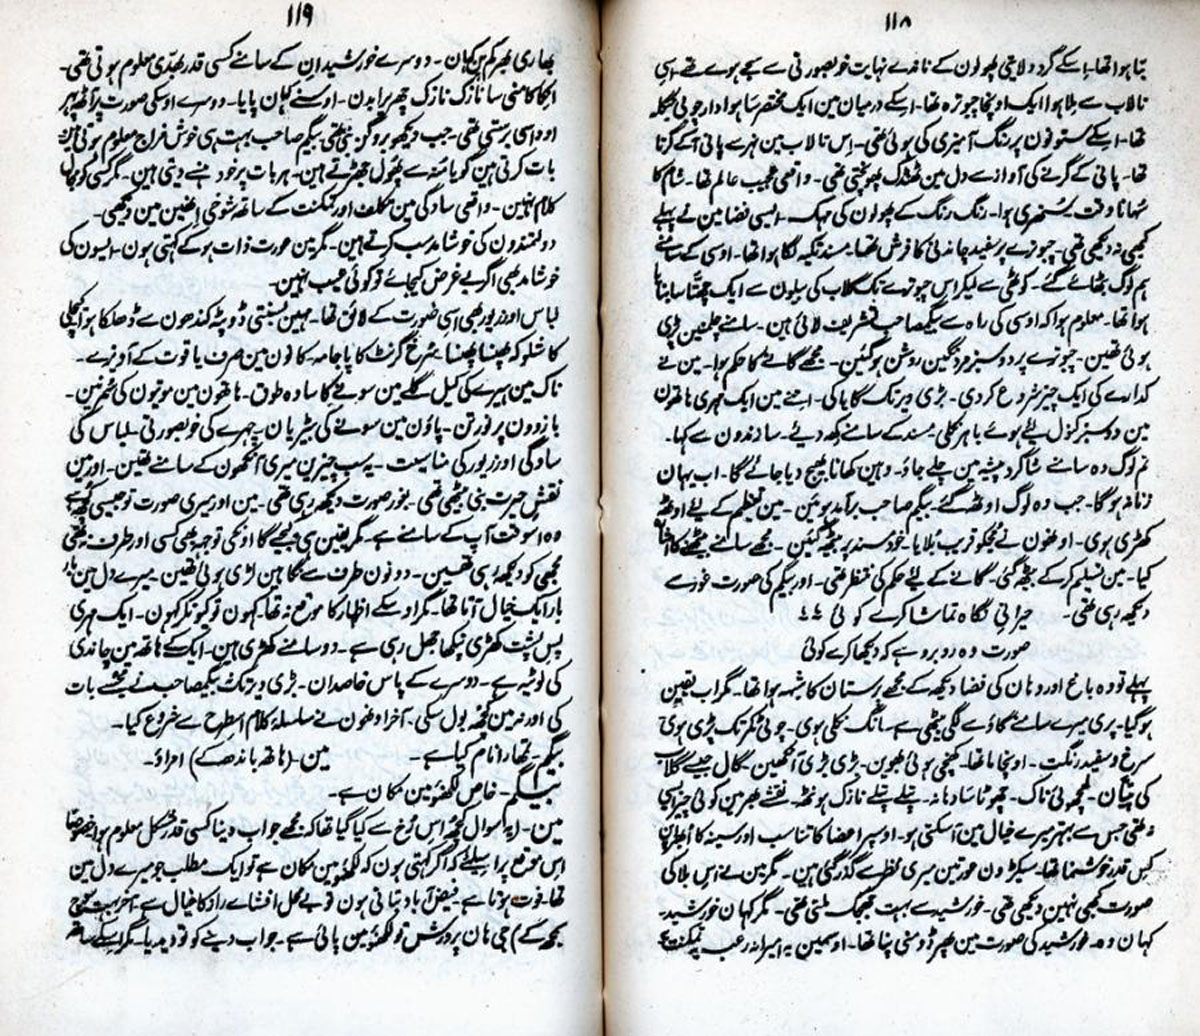 ۱۱۸
بنا ہوا تھا۔ اسکے گرد ولایتی پھولون کے ناندے نہایت خوبصورتی سے سجے ہوے تھے۔ اسی
تالاب سے ملا ہوا ایک اونچا چبوترہ تھا۔ اسکے درمیان مین ایک مختصر سا ہوادار چوبی بنگلہ
تھا۔ اسکے ستونون پر رنگ آمیزی کی ہوئی تھی۔ اس تالاب مین نہر سے پانی آکے گرتا
تھا۔ پانی کے گرنے کی آواز سے دل مین ٹھنڈک پہونچتی تھی۔ واقعی عجیب عالم تھا۔ شام کا
سُہانا وقت سُتھری ہوا۔ رنگ رنگ کے پھولون کی مہک۔ ایسی فضا مین نے پہلے
کبھی نہ دیکھی تھی۔ چبوترے پر سفید چاندنی کا فرش تھا۔ مسند تکیہ لگا ہوا تھا۔ اوسی کے سامنے
ہم لوگ بٹھائے گئے۔ کوٹھی سے لیکر اس چبوترے تک گلاب کی بیلون سے ایک چھتا سا بنا
ہوا تھا۔ معلوم ہوا کہ اوسی کی راہ سے بیگم صاحب تشریف لاتی ہین۔ سامنے چلمنین پڑی
ہوئی تھین۔ چبوترے پر دو سبز مردنگین روشن ہوگئین۔ مجھے گانے کا حکم ہوا۔ مین نے
کدارے کی ایک چیز شروع کردی۔ بڑی دیر تک گایا کی۔ اتنے مین ایک مہری ہاتھون
مین دو سبز کنول لئے ہوے باہر نکلی۔ مسند کے سامنے رکھ دیے۔ سازندون سے کہا۔
تم لوگ وہ سامنے شاگرد پیشہ مین چلے جاؤ۔ وہین کھانا بھیج دیا جائے گا۔ اب یہان
زنانہ ہوگا۔ جب وہ لوگ اوٹھ گئے۔ بیگم صاحب برآمد ہوئین۔ مین تعظیم کے لیے اوٹھ
کھڑی ہوی۔ اونھون نے مجھکو قریب بُلایا۔ خود مسند پر بیٹھ گئین۔ مجھے سامنے بیٹھنے کا اشارہ
کیا۔ مین تسلیم کرکے بیٹھ گئی۔ گانے کے لیے حکم کی منتظر تھی۔ اور بیگم کی صورت غور سے
دیکھ رہی تھی۔ حیرانیِ نگاہ تماشا کرے کوئی
صورت وہ روبرو ہے کہ دیکھا کرے کوئی
پہلے تو وہ باغ اور وہان کی فضا دیکھ کے مجھے پرستان کا شبہہ ہوا تھا۔ مگر اب یقین
ہوگیا۔ پری میرے سامنے گاؤ سے لگی بیٹھی ہے۔ مانگ نکلی ہوی۔ چوٹی کمر تک پڑی ہوی
سرخ و سفید رنگت۔ اونچا ماتھا۔ کھنچی ہوئی بھوین۔ بڑی بڑی آنکھین۔ گال جیسے گلاب
کی پتیان۔ ناک۔ چھوٹا سا دہانہ۔ پتلے پتلے نازک ہونٹھ۔ نقشے بھر مین کوئی چیز ایسی
نہ تھی جس سے بہتر میرے خیال مین آسکتی ہو۔ اوسپر اعضا کا تناسب اور سینہ کا اوبھار
کس قدر خوشنما تھا۔ سیکڑون عورتین میری نظر سے گذر گئی ہین۔ مگر مین نے اس بلا کی
صورت کبھی نہین دیکھی تھی۔ خورشید سے بہت جھپک ملتی تھی۔ مگر کہان خورشید۔
کہان وہ۔ خورشید کی صورت مین پھر ڈومنی پنا تھا۔ اوسمین یہ امیرانہ رعب تمکنت
۱۱۹
بھاری بھرکم پن کہان۔ دوسرے خورشید ان کے سامنے کسی قدر بھدّی معلوم ہوتی تھی۔
انکا کامنی سا نازک نازک چھریرا بدن۔ اوسنے کہان پایا۔ دوسرے اوسکی صورت پر آٹھ پہر
اوداسی برستی تھی۔ جب دیکھو بروگن بنی بیٹھی۔ بیگم صاحب بہت ہی خوش مزاج معلوم ہوتی ہین
بات کرتی ہین گویا منہ سے پھول جھڑتے ہین۔ ہر بات پر خود ہنسے دیتی ہین۔ مگر کسی کو مجال
کلام نہین۔ واقعی سادگی مین تکلف اور تمکنت کے ساتھ شوخی انھین مین دیکھی۔
دولتمندون کی خوشامد سب کرتے ہین۔ مگر مین عورت ذات ہوکے کہتی ہون۔ ایسون کی
خوشامد بھی اگر بے غرض کیجائے تو کوئی عیب نہین۔
لباس اور زیور بھی اسی صورت کے لائق تھا۔ مہین بسنتی ڈوپٹہ کندھون سے ڈھلکا ہوا کچلی
کا شلوکہ پھنسا پھنسا سرخ گرنٹ کا پاجامہ کانون مین صرف یاقوت کے آویزے۔
ناک مین ہیرے کی کیل گلے مین سونے کا سادہ طوق۔ ہاتھون مین موتیون کی سمرنین۔
بازوون پر نورتن۔ پاؤن مین سونے کی بیڑیان۔ چہرے کی خوبصورتی۔ لباس کی
سادگی اور زیور کی مناسبت۔ یہ سب چیزین میری آنکھون کے سامنے تھین۔ اور مین
نقش حیرت بنی بیٹھی تھی۔ بغور صورت دیکھ رہی تھی۔ مین اور میری صورت تو جیسی کچھ ہے
وہ اسوقت آپ کے سامنے ہے۔ مگر یقین ہی کیجیے گا اونکی توجہ بھی کسی اور طرف نہ تھی
مجھی کو دیکھ رہی تھین۔ دونون طرف سے نگاہین لڑی ہوئی تھین۔ میرے دل مین بار
بار ایک خیال آتا تھا۔ مگر اوسکے اظہار کا موقع نہ تھا۔ کہون تو کیونکر کہون۔ ایک مہری
پس پشت کھڑی پنکھا جھل رہی ہے۔ دو سامنے کھڑی ہین۔ ایک کے ہاتھ مین چاندی
کی لوٹیہ ہے۔ دوسرے کے پاس خاصدان۔ بڑی دیر تک بیگم صاحب نے مجھسے بات
کی اور نہ مین کچھ بول سکی۔ آخر اونھون نے سلسلۂ کلام اسطرح سے شروع کیا۔
بیگم۔ تمھارا نام کیا ہے۔ مین۔ (ہاتھ باندھ کے) امراؤ۔
بیگم۔ خاص لکھنؤ مین مکان ہے۔
مین۔ (یہ سوال کچھ اس رُخ سے کیا گیا تھا کہ مجھے جواب دینا کسی قدر مشکل معلوم ہوا خصوصاً
اس موقع پر اسلئے کہ اگر کہتی ہون کہ لکھنؤ مین مکان ہے تو ایک مطلب جو میرے دل مین
تھا فوت ہوتا ہے۔ فیض آباد بتاتی ہون تو بے محل افشائے راز کا خیال ہے۔ آخر بہت سوچ
سمجھ کے) جی ہان پرورش تو لکھنؤ مین پائی ہے۔ جواب دینے کو تو دیدیا۔ مگر اسکے ساتھ